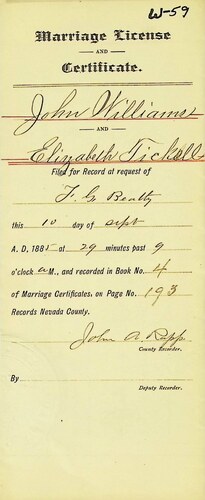 W-59
Marriage License
AND
Certificate.
John Williams
AND
Elizabeth Tickell
Filed for Record at request of
F. G. Beatty
this 10 day of Sept
A. D. 1885 at 29 minutes past 9
o'clock a M., and recorded in Book No. 4
of Marriage Certificates, on Page No. 193
Records Nevada County.
John A. Rapp
County Recorder.
By
Deputy Recorder.